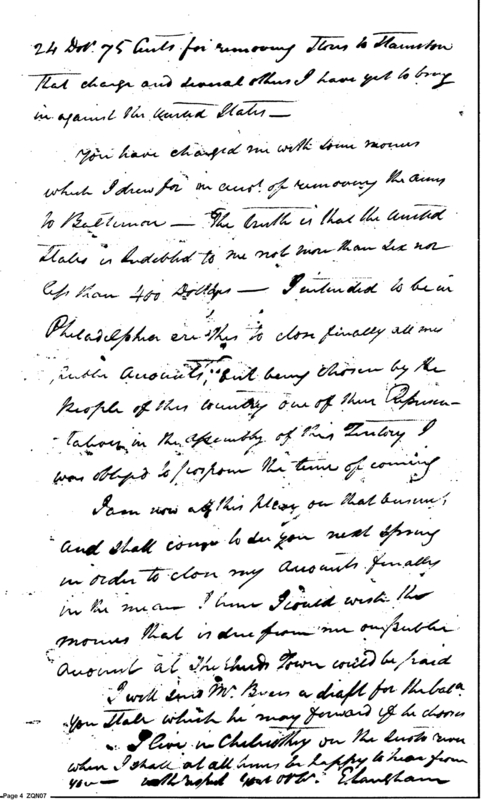 24 Dolrs. 75 Cents for removing Stores to Staunton
that charge and several others I have yet to bring
in against the United States —
You have charged me with some monies
which I drew for on acct. of removing the arms
to Baltimore — The truth is that the United
States is Indebted to me not more than Six nor
less than 400 Dollars — I intended to be in
Philadelphia ere this to close finally all my
public Accounts, but being chosen by the
People of this Country one of their Represen-
tatives in the Assembly of this Territory I
was obliged to postpone the time of coming
I am now at this place on that business,
and shall come to see you next Spring
in order to close my Accounts finally
in the mean time I could wish the
monies that is due from me on public
Account at The Town could be paid
I will send Mr. a draft for the bala
you State which he may forward if he chooses
I live in Chelicothy on the Scioto river
where I shall at all times be happy to hear from
you — with respect your Ob. St. E Langham
Page 4 ZQN07